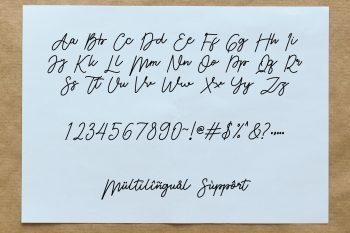 Aa Bb Cc Dd Ee Ff Gg Hh Ii
Jj Kk Ll Mm Nn Oo Pp Qq Rr
Ss Tt Uu Vv Ww Xx Yy Zz
1234567890~!@#$%^&?
Mültilïngüâl Sùppört